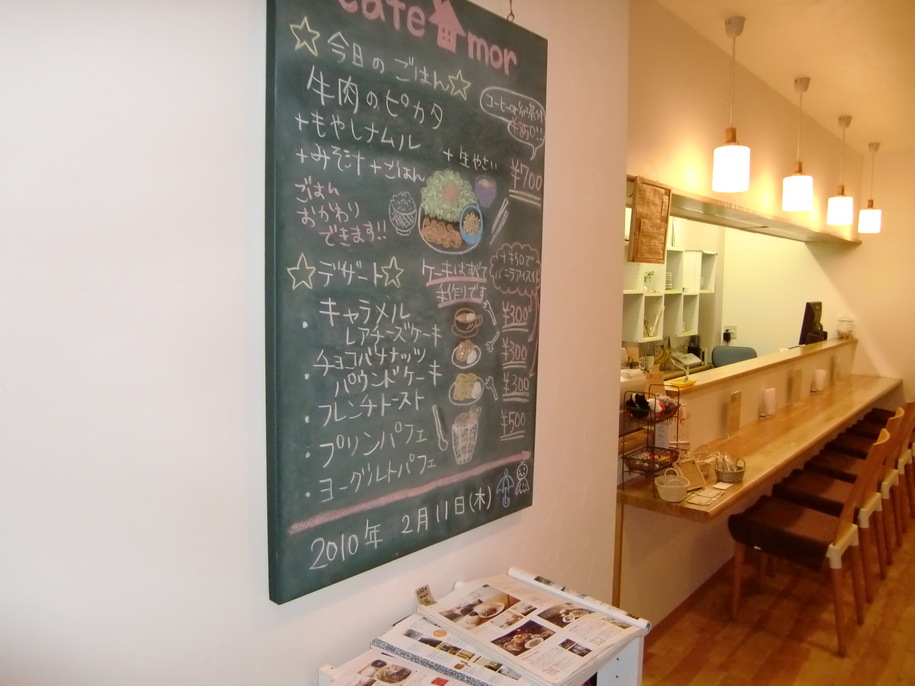 cafe mor
今日のごはん
牛肉のピカタ
+もやしナムル
+みそ汁+ごはん +生やさい
¥700
¥850!!
ごはん
おかわり
できます!!
デザート
ケーキはすべて
手作りです
+¥50で
バニラアイス
・キャラメル
レアチーズケーキ
¥300
・チョコバナナッツ
パウンドケーキ
¥300
・フレンチトースト
¥300
・プリンパフェ
¥500
・ヨーグルトパフェ
2010年 2月11日(木)